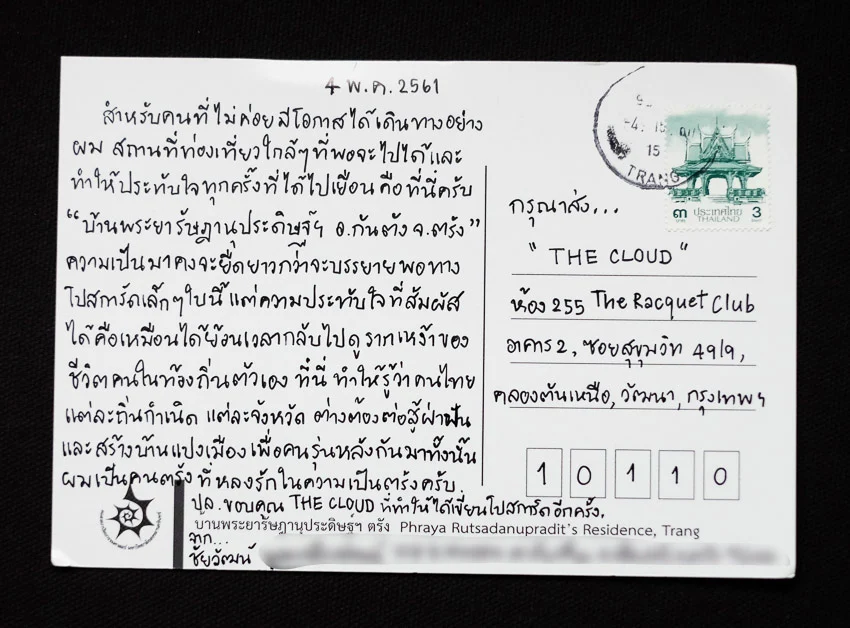 4 พ.ค. 2561
สำหรับคนที่ไม่ค่อยมีโอกาสได้เดินทางอย่าง
ผม สถานที่ท่องเที่ยวใกล้ๆที่พอจะไปได้และ
ทำให้ประทับใจทุกครั้งที่ได้ไปเยือน คือที่นี่ครับ
"บ้านพระยารัษฎานุประดิษฐ์ฯ อ.กันตัง จ.ตรัง"
ความเป็นมาคงจะยืดยาวกว่าจะบรรยายพอทาง
โปสการ์ดเล็กๆใบนี้ แต่ความประทับใจที่สัมผัส
ได้คือเหมือนได้ย้อนเวลากลับไปดูรากเหง้าของ
ชีวิตคนในท้องถิ่นตัวเอง ที่นี่ ทำให้รู้ว่าคนไทย
แต่ละถิ่นกำเนิด แต่ละจังหวัด ต่างต้องต่อสู้ฝ่าฟัน
และสร้างบ้านแปงเมือง เพื่อคนรุ่นหลังกันมาทั้งนั้น
ผมเป็นคนตรัง ที่หลงรักในความเป็นตรังครับ.
ปล. ขอบคุณ THE CLOUD ที่ทำให้ได้เขียนโปสการ์ดอีกครั้ง.
บ้านพระยารัษฎานุประดิษฐ์ฯ ตรัง Phraya Rutsadanupradit's Residence, Trang
จาก...
ชัยวัฒน์
15
TRANG
๓ ประเทศไทย 3
THAILAND
กรุณาส่ง...
"THE CLOUD"
ห้อง 255 The Racquet Club
อาคาร 2, ซอยสุขุมวิท 49/9,
คลองตันเหนือ, วัฒนา, กรุงเทพฯ
1 0 1 1 0